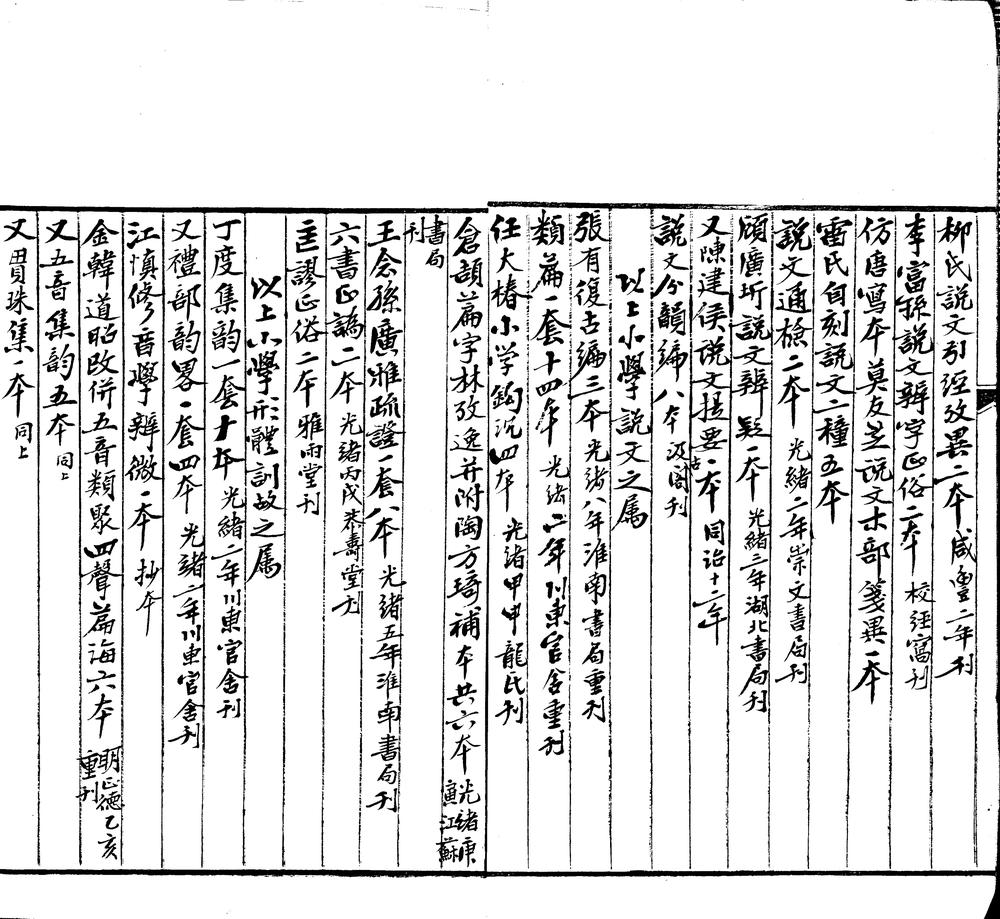 柳氏說文引經攷異二本 咸豐二年刊
李富孫說文辨字正俗二本 校經窩刊
仿唐寫本莫友芝說文木部箋異一本
雷氏自刻說文二種五本
說文通檢二本 光緒二年崇文書局刊
顧廣圻說文辨疑一本 光緒三年湖北書局刊
又陳建侯說文提要一本 同治十二年
說文分韻編八本 汲古閣刊
以上小學說文之属
張有復古編三本 光緒八年淮南書局重刊
類篇一套十四本 光緒二年川東官舍重刊
任大椿小学鈎沉四本 光緒甲申龍氏刊
倉頡篇字林攷逸并附陶方琦補本共六本 光緒庚寅江蘇
書局刊
王念孫廣雅疏證一套八本 光緒五年淮南書局刊
六書正譌二本 光緒丙戌恭壽堂刊
匡謬正俗二本 雅雨堂刊
以上小學形體訓故之属
丁度集韵一套十本 光緒二年川東官舍刊
又禮部韵畧一套四本 光緒二年川東官舍刊
江慎修音學辨微一本 抄本
金韓道昭改併五音類聚四聲篇海六本 明正德乙亥重刊
又五音集韵五本 同上
又貫珠集一本 同上